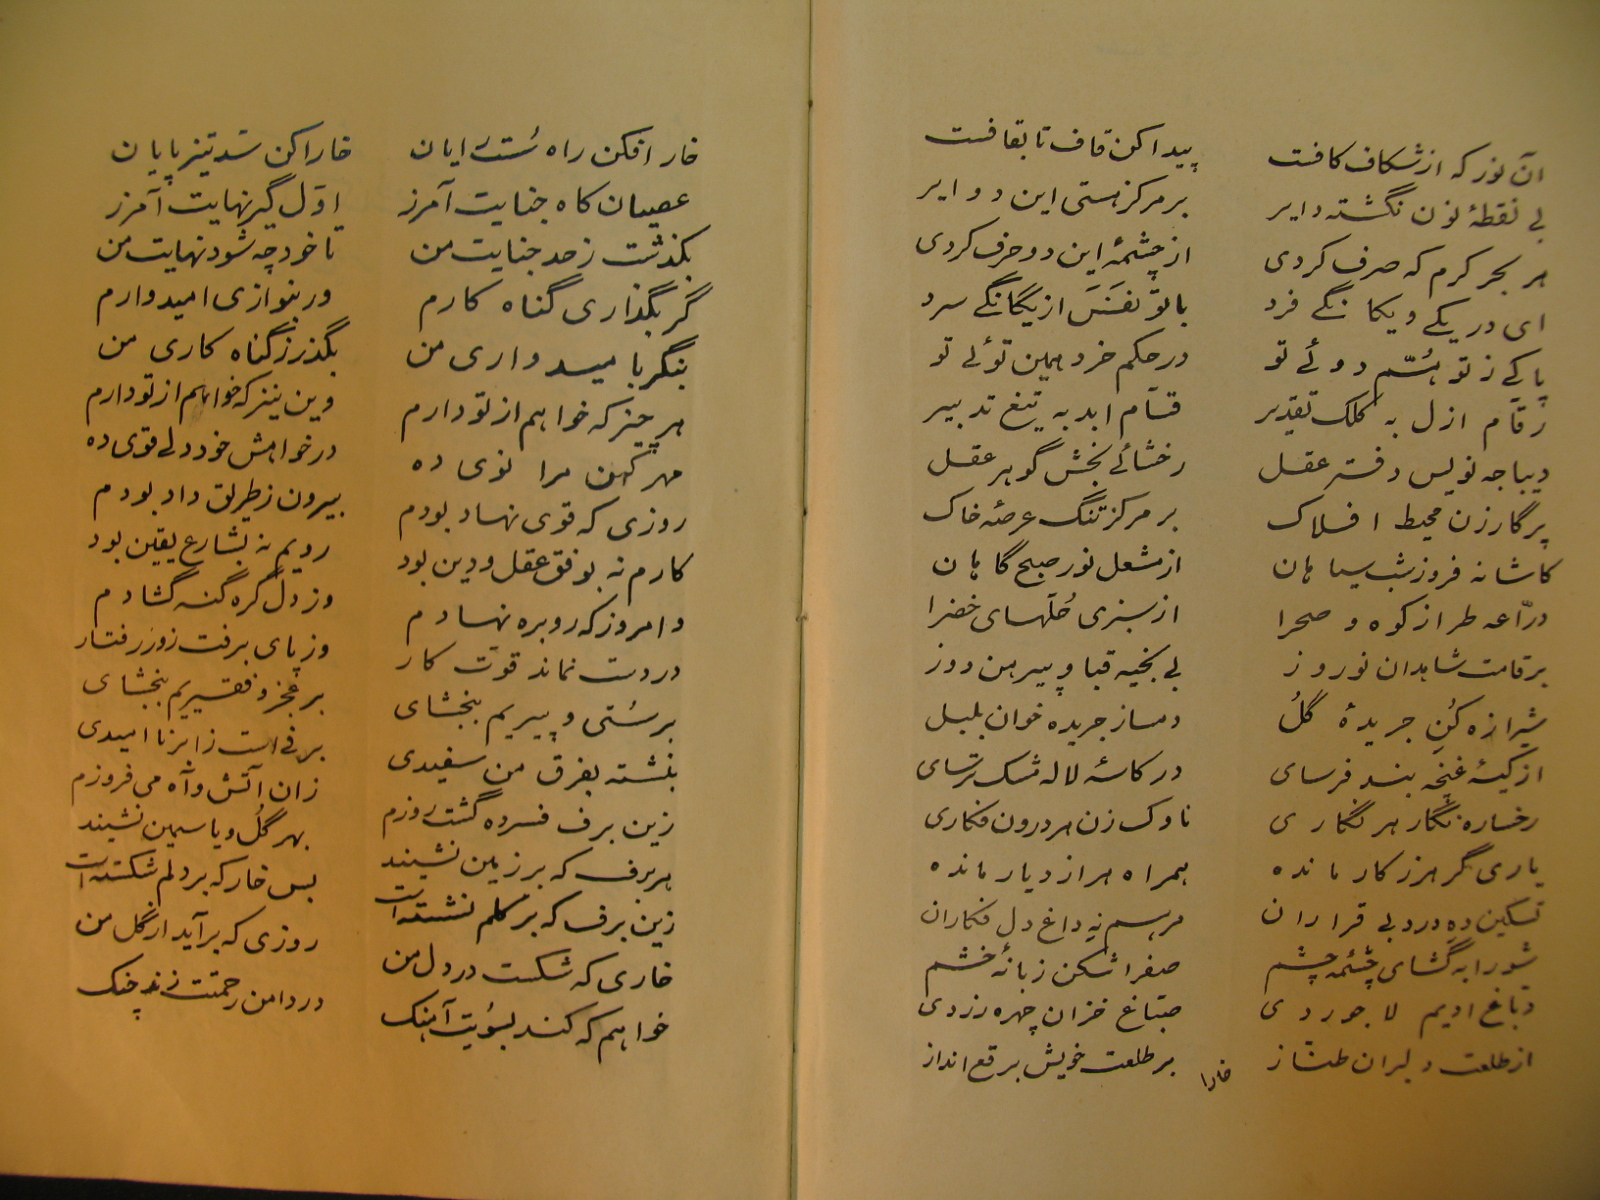 آن نور که از شکاف کافت    پیدا کن قاف تا بقافست
بی نقطهٔ نون نگشته دایر    بر مرکز هستی این دوایر
هر بحر کرم که صرف کردی    از چشمهٔ این دو حرف کردی
ای در یکے و یکانگے فرد    با تو نفسَ از یگانگے سرد
پاکے ز تو هُشم دوئے تو    در حکم خرد همین توئے تو
رقام ازل به کلک تقدیر    قسّام ابد به تیغ تدبیر
دیباجه نویس دفتر عقل    رخشائے بخش گوهر عقل
پرگار زن محیط افلاک    بر مرکز تنگ عرصهٔ خاک
کاشانه فروز شب سیاهان    از مشعل نور صبح گاهان
درّاعه طراز کوه و صحرا    از سبزی حُلّهای خضرا
بر قامت شاهدان نوروز    بی بخیه قبا و پیرهن دوز
شیرازه کُنِ جریدهٔ گُل    دمساز جریده خوان بلبل
از کیسهٔ غنچه بند فرسای    در کاسهٔ لاله مشک ترسای
رخساره نگار هر نگاری    ناوک زن هر درون فکاری
یاری گر هر ز کار مانده    همراه هر از دیار مانده
تسکین ده درد بی قراران    مرهم نه داغ دل فکاران
شورابه گشای چشمه چشم    صفرا شکن زبانهٔ خشم
دبّاغ ادیم لاجوردی    صبّاغ خزان چهره زردی
از طلعت دلبران طنّاز    بر طلعت خویش برقع انداز
خارا
خار افکن راه سُست رایان    خارا کن شدتیز پایان
عصیان کاه جنایت آمرز    اوّل گیر نهایت آمرز
بگذشت ز حد جنایت من    تا خود چه شود نهایت من
گر بگذاری گناه کارم    ور بنوازی امیدوارم
بنگر با میدواری من    بگذر ز گناه کاری من
هر چیز که خواهم از تو دارم    وین نیز که خواهم از تو دارم
مهر کهن مرا نوی ده    در خواهش خود دلے قوی ده
روزی که قوی نهاد بودم    بیرون ز طریق داد بودم
کارم نه بوفق عقل و دین بود    رویم نه بشارع یقین بود
و امروز که رو بره نهادم    وز دل گره گنه گشادم
در دست نماند قوّت کار    وز پای برفت زور رفتار
بر سُستی و پیریم ببخشای    بر عجز و فقیریم ببخشای
بنشسته بفرق من سفیدی    برفی است ز ابر ناامیدی
زین برف فسرده گشت روزم    زان آتش و آه می فروزم
هر برف که بر زمین نشیند    بهر گُل و یاسمین نشیند
زین برف که بر گلم نشسته است    بس خار که بر دلم شکسته است
خاری که شکست در دل من    روزی که برآید از گل من
خواهم که کند بسُویت آهنگ    در دامن رحمتت زند چنگ